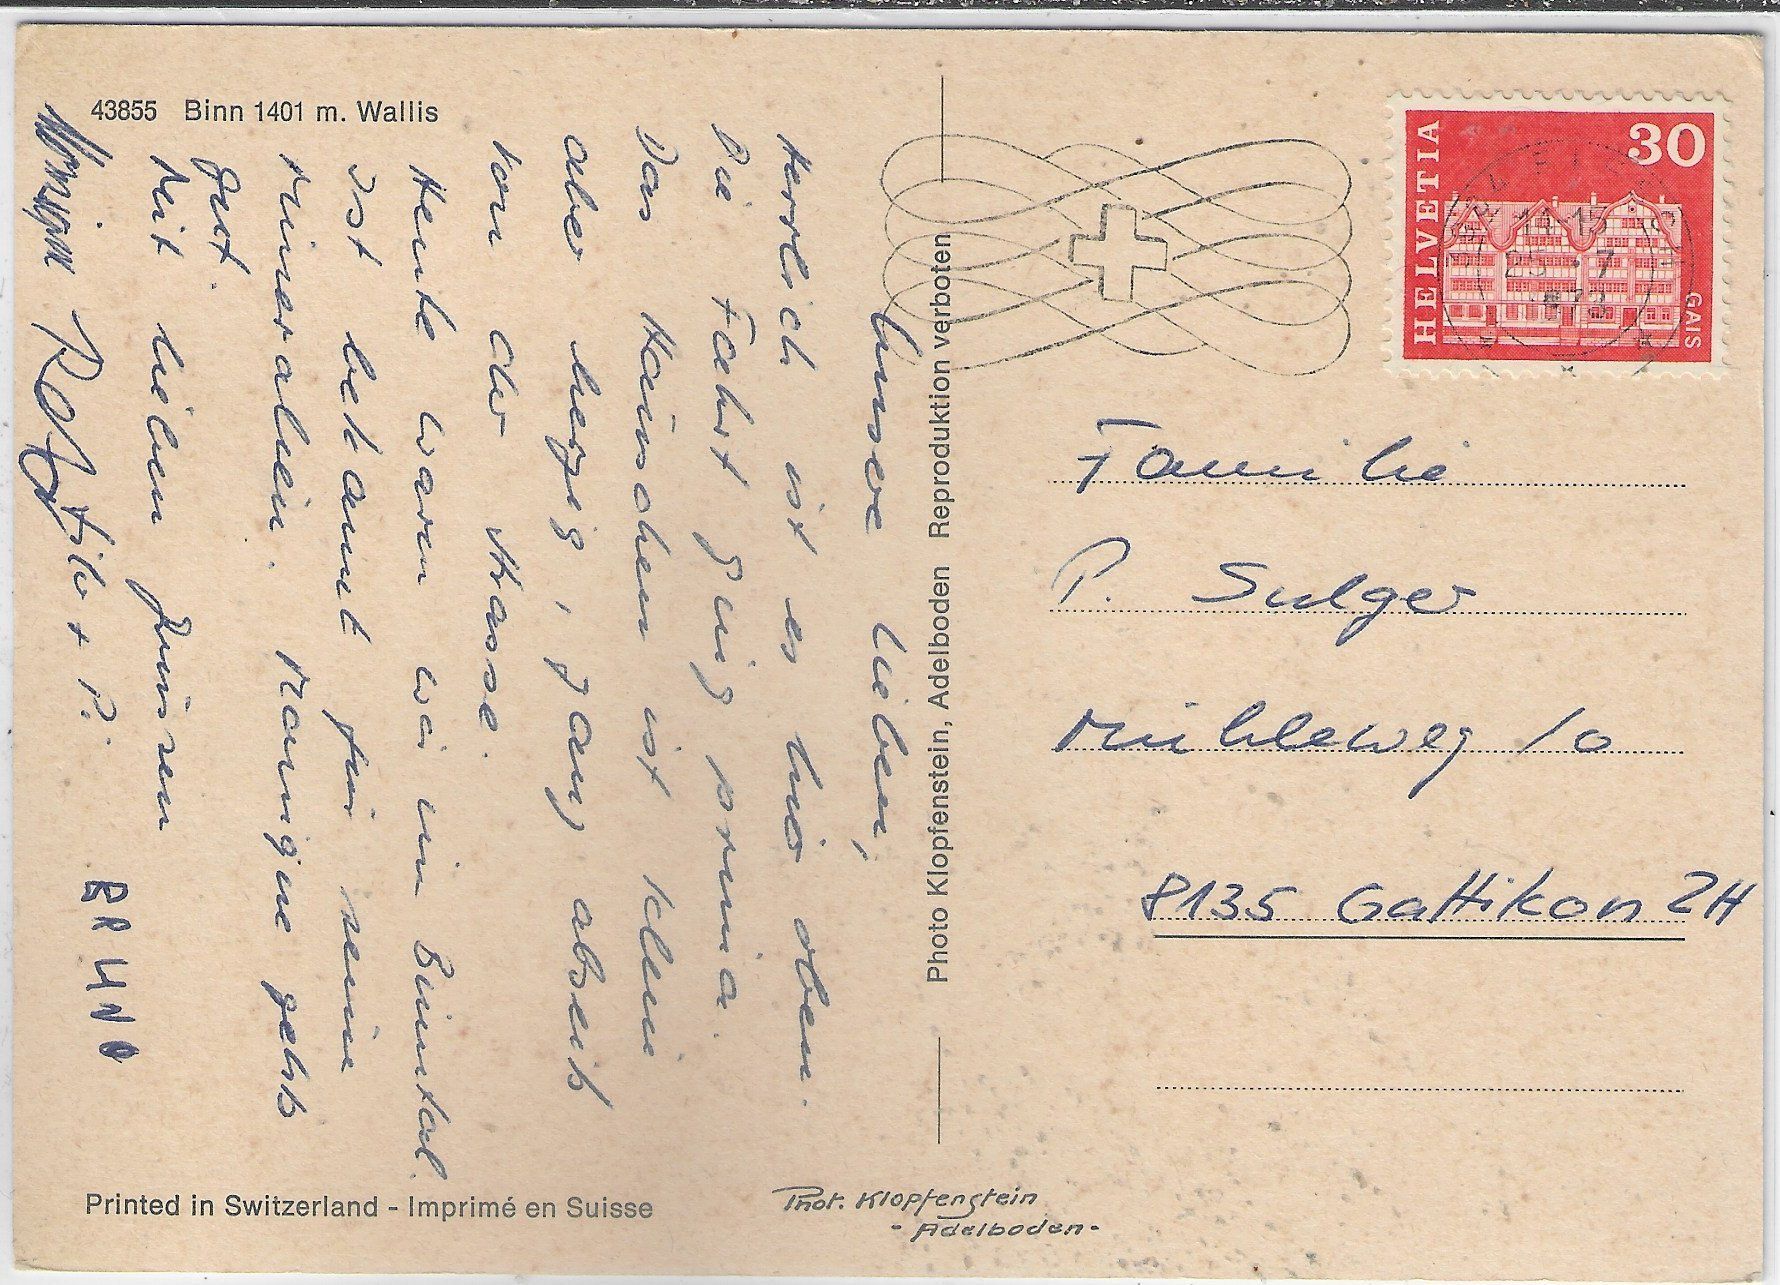 43855 Binn 1401 m. Wallis
Unsere Lieben,
Herrlich ist es hier oben.
Die Fahrt ging prima.
Das Häuschen ist klein
aber herzig, ganz abseits
von der Strasse.
Heute waren wir im Binntal.
Ist bekannt für seine
Mineralien. Monique gehts
gut.
Mit lieben Grüssen
Monique
+ P.
BRUNO
Photo Klopfenstein, Adelboden Reproduktion verboten
HELVETIA
30
GAIS
14-15
25.-7
Familie
P. Sulger
Mühleweg 10
8135 Gattikon ZH
Printed in Switzerland - Imprimé en Suisse
Phot. Klopfenstein
- Adelboden -